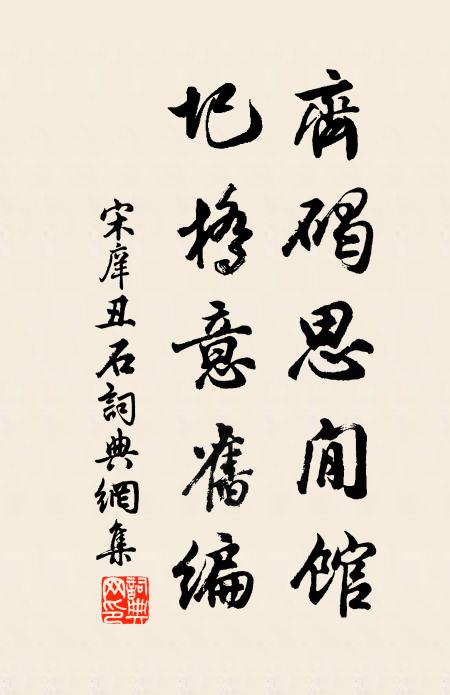 齊碣思閒館
圯橋意舊編
宋庠丑石詞典網集
詞典
网印